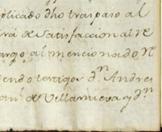 plicado dho traspaso al
de Satisfaccion al Re
argo, al mencionado n
endo testigos dn. Andres
de Villanueva y dn